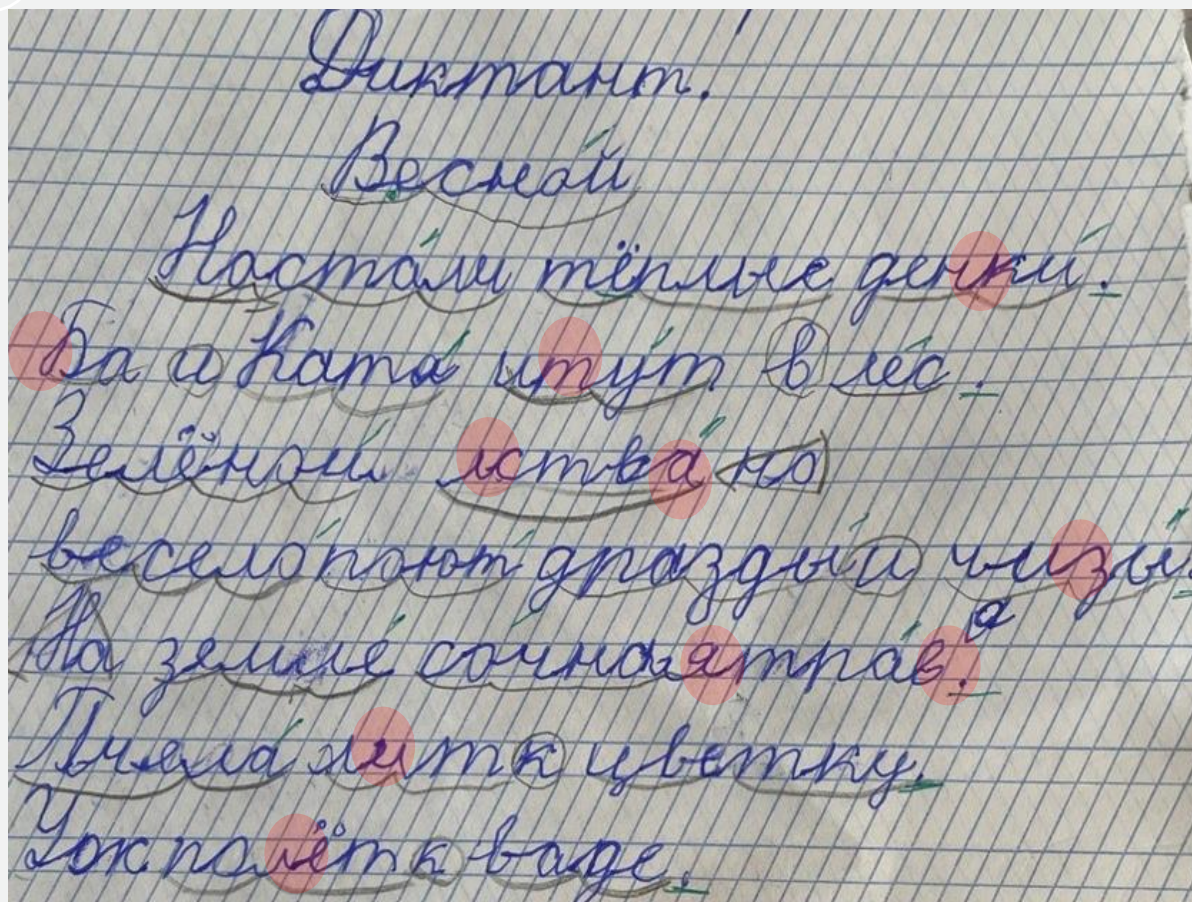 Диктант.
Весной
Настали тёплые денки.
Ба и Ката итут в лес.
Зелёной лства но
весело поют дразды и чизы.
На земле сочная трава.
Пчела литк цветку.
Уж полётк ваде.